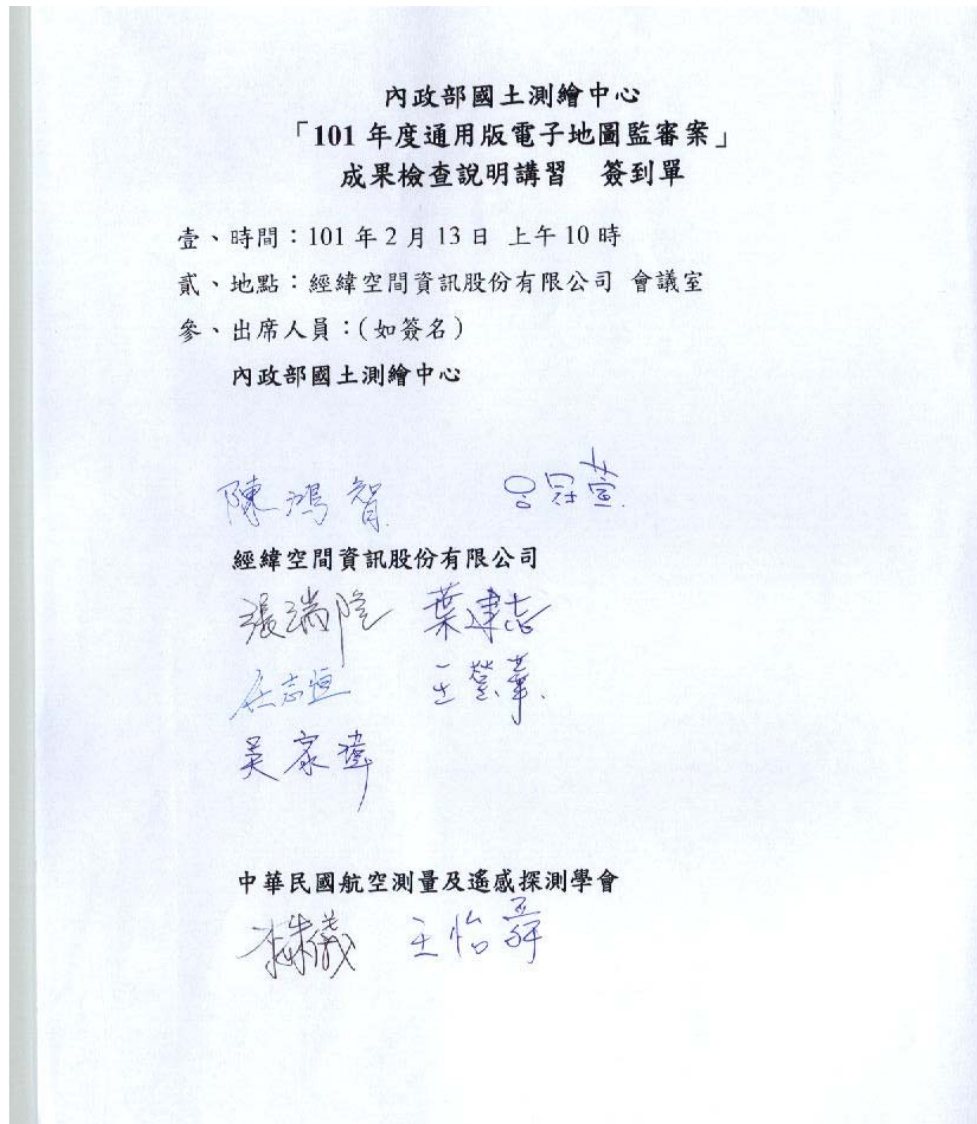 內政部國土測繪中心
「101 年度通用版電子地圖監審案」
成果檢查說明講習 簽到單
壹、時間：101 年 2 月 13 日 上午 10 時
貳、地點：經緯空間資訊股份有限公司 會議室
參、出席人員：(如簽名)
內政部國土測繪中心
陳鴻智 呂冠萱
經緯空間資訊股份有限公司
張瑞隆 葉建志
志恒 王瑩華
吳家瑋
中華民國航空測量及遙感探測學會
王怡